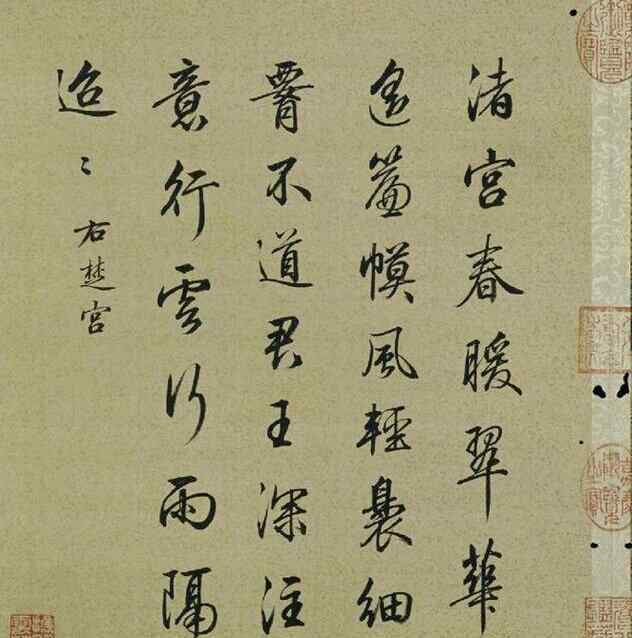 渚宮春暖翠華
遙簾幙風輕裊細
腰不道君王深注
意行雲行雨隔
迢〻 右楚宮